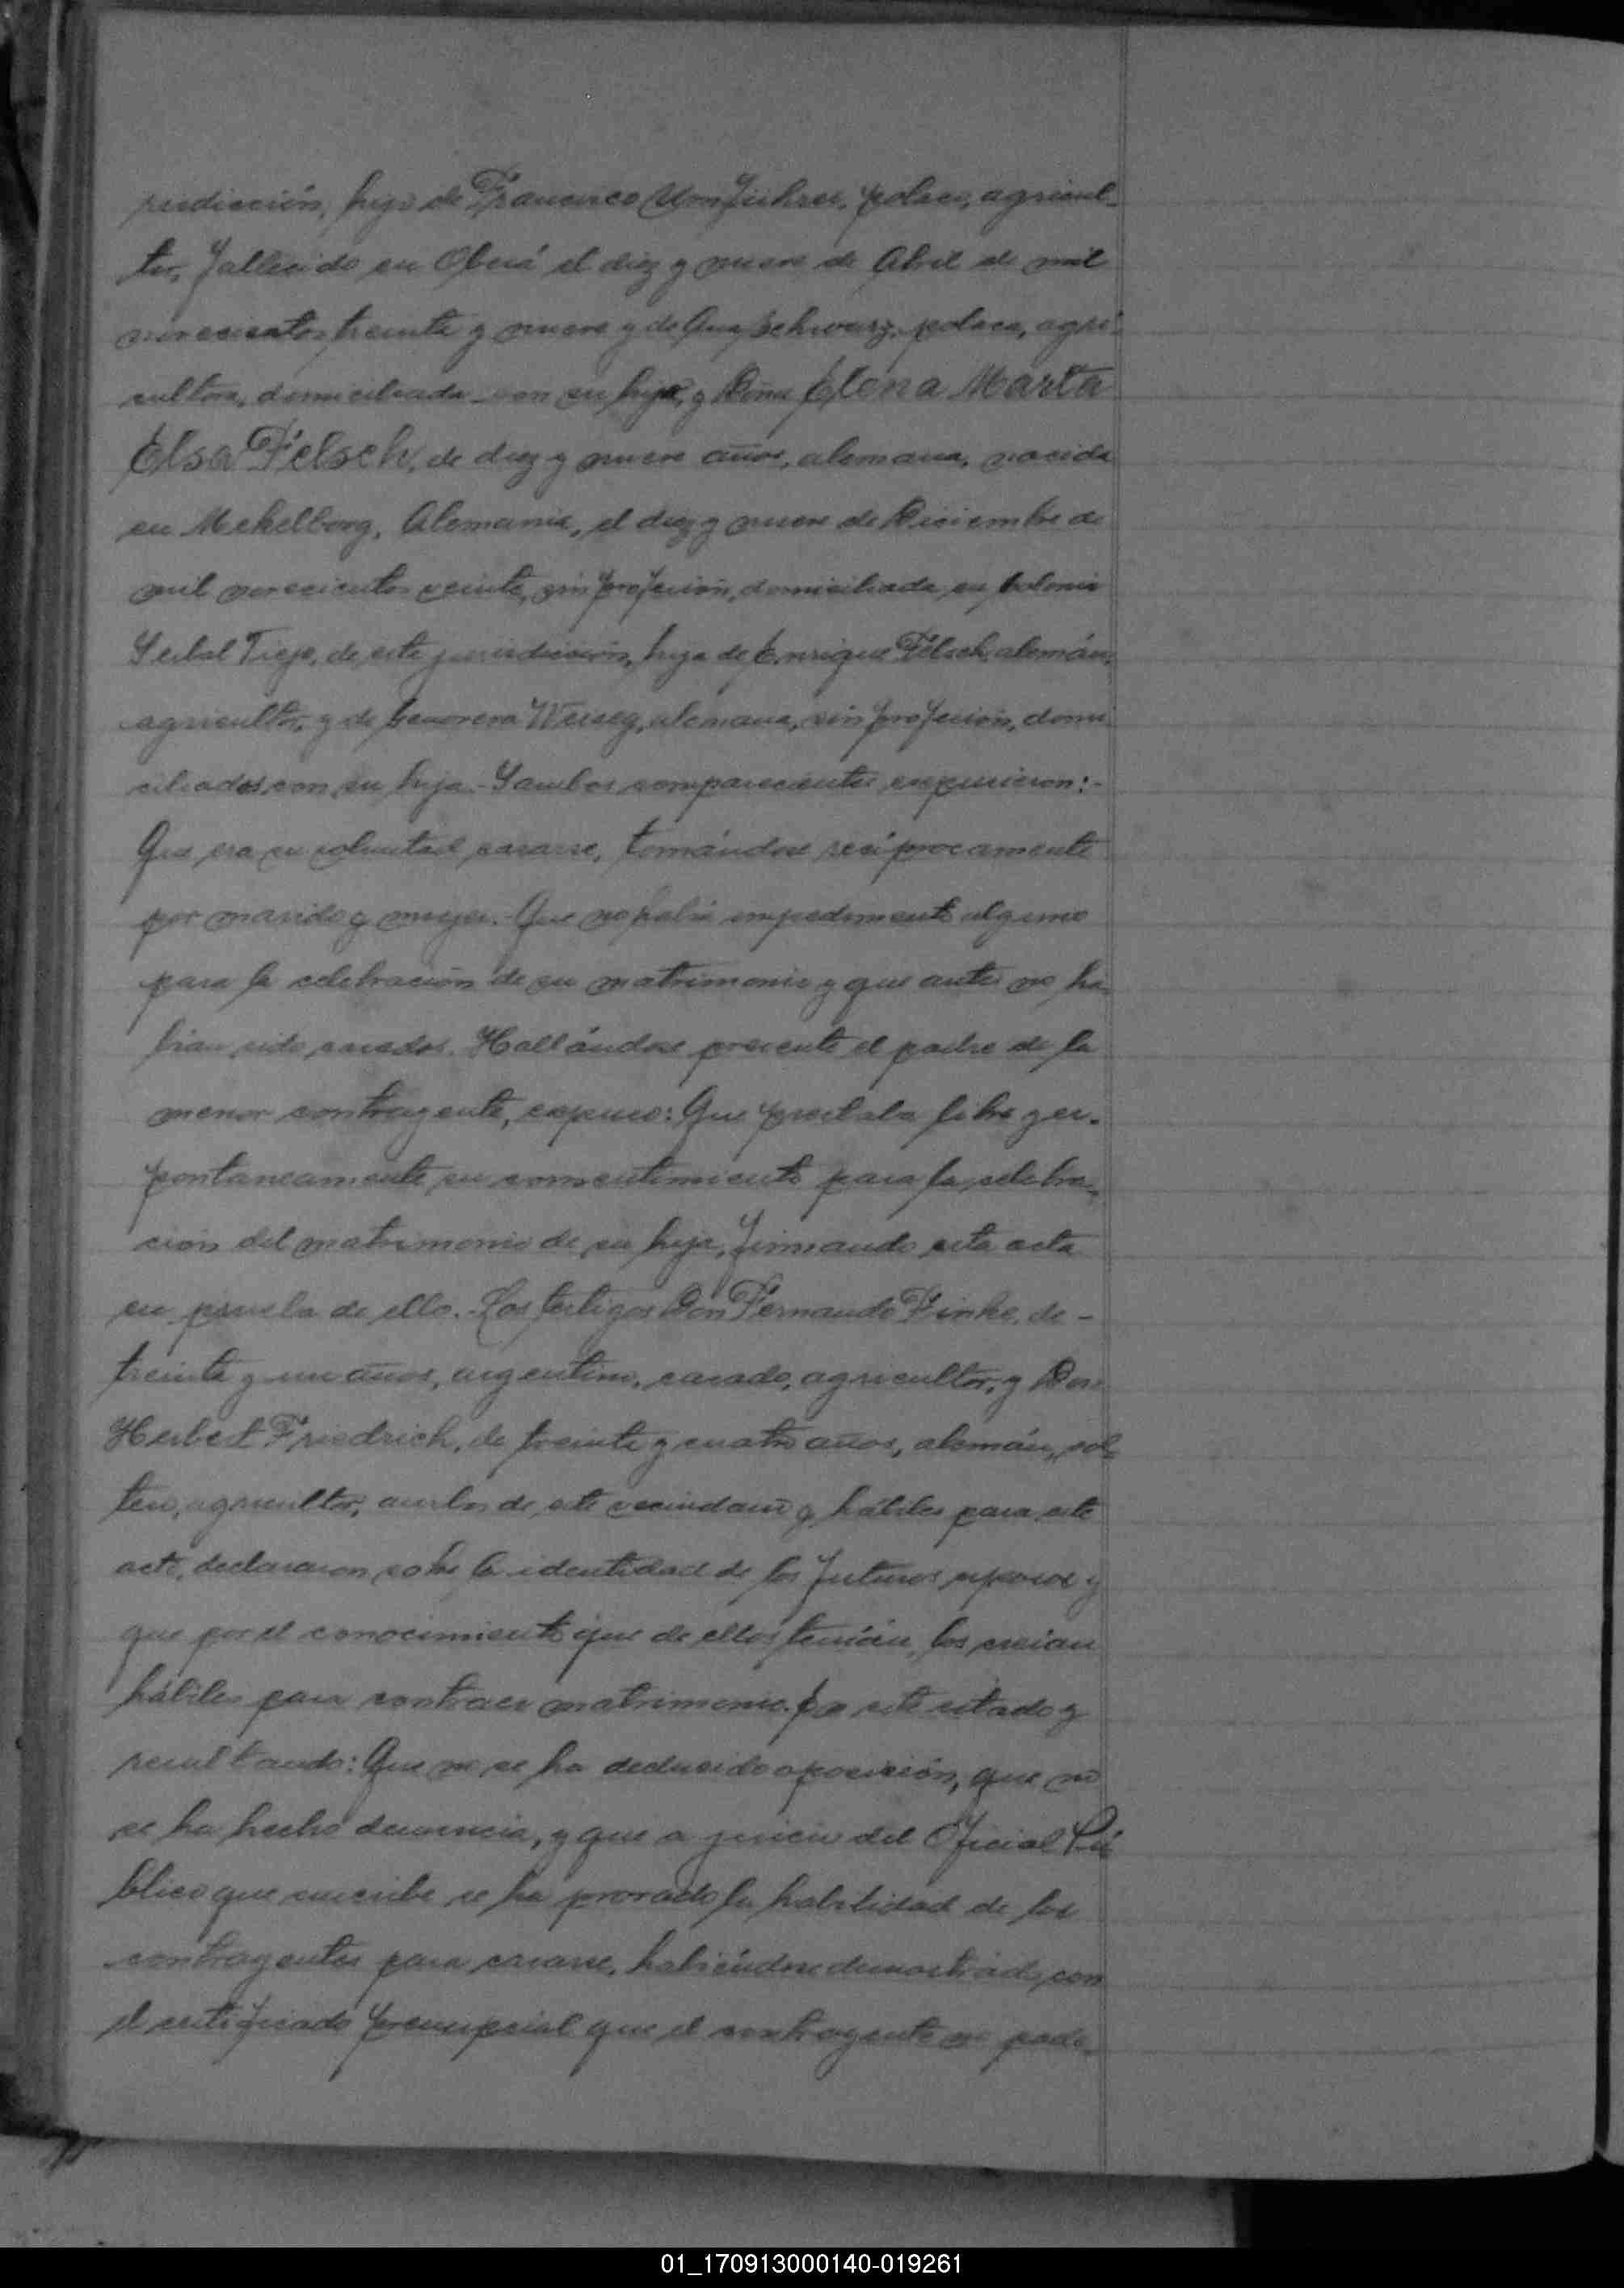 risdicción, hijo de Francisco Umfuhrer, polaco, agricul-
tor, fallecido en Oberá el diez y nueve de Abril de mil
novecientos treinta y nueve y de Ana Schwarz, polaca, agri-
cultora, domiciliada con su hijo, y Doña Elena Marta
Elsa Felsch, de diez y nueve años, alemana, nacida
en Mekelborg, Alemania, el diez y nueve de Diciembre de
mil novecientos veinte, sin profesión, domiciliada en Colonia
Yerbal Viejo, de esta jurisdicción, hija de Enrique Felsch, alemán,
agricultor, y de alemana, sin profesión, domi-
ciliados con su hija.- Y ambos comparecientes expusieron:-
Que era su voluntad casarse, tomándose recíprocamente
por marido y mujer.- Que no había impedimento alguno
para la celebración de su matrimonio y que antes no ha-
bían sido casados. Hallándose presente el padre de la
menor contrayente, expuso: Que prestaba libre y es-
pontaneamente su consentimiento para la celebra-
ción del matrimonio de su hija, firmando esta acta
en prueba de ello.- Los testigos Don Fernando Finke, de -
treinta y un años, argentino, casado, agricultor, y Don
Herbert Friedrich, de treinta y cuatro años, alemán, sol-
tero, agricultor, ambos de este vecindario y hábiles para este
acto, declararon sobre la identidad de los futuros esposos y
que por el conocimiento que de ellos tenían, los creían
hábiles para contraer matrimonio. En este estado y
resultando: Que no se ha deducido oposición, que no
se ha hecho denuncia, y que a juicio del Oficial Pú-
blico que suscribe se ha provado la habilidad de los
contrayentes para casarse, habiéndose demostrado con
el certificado prenupcial que el contrayente no pade-
01_170913000140-019261